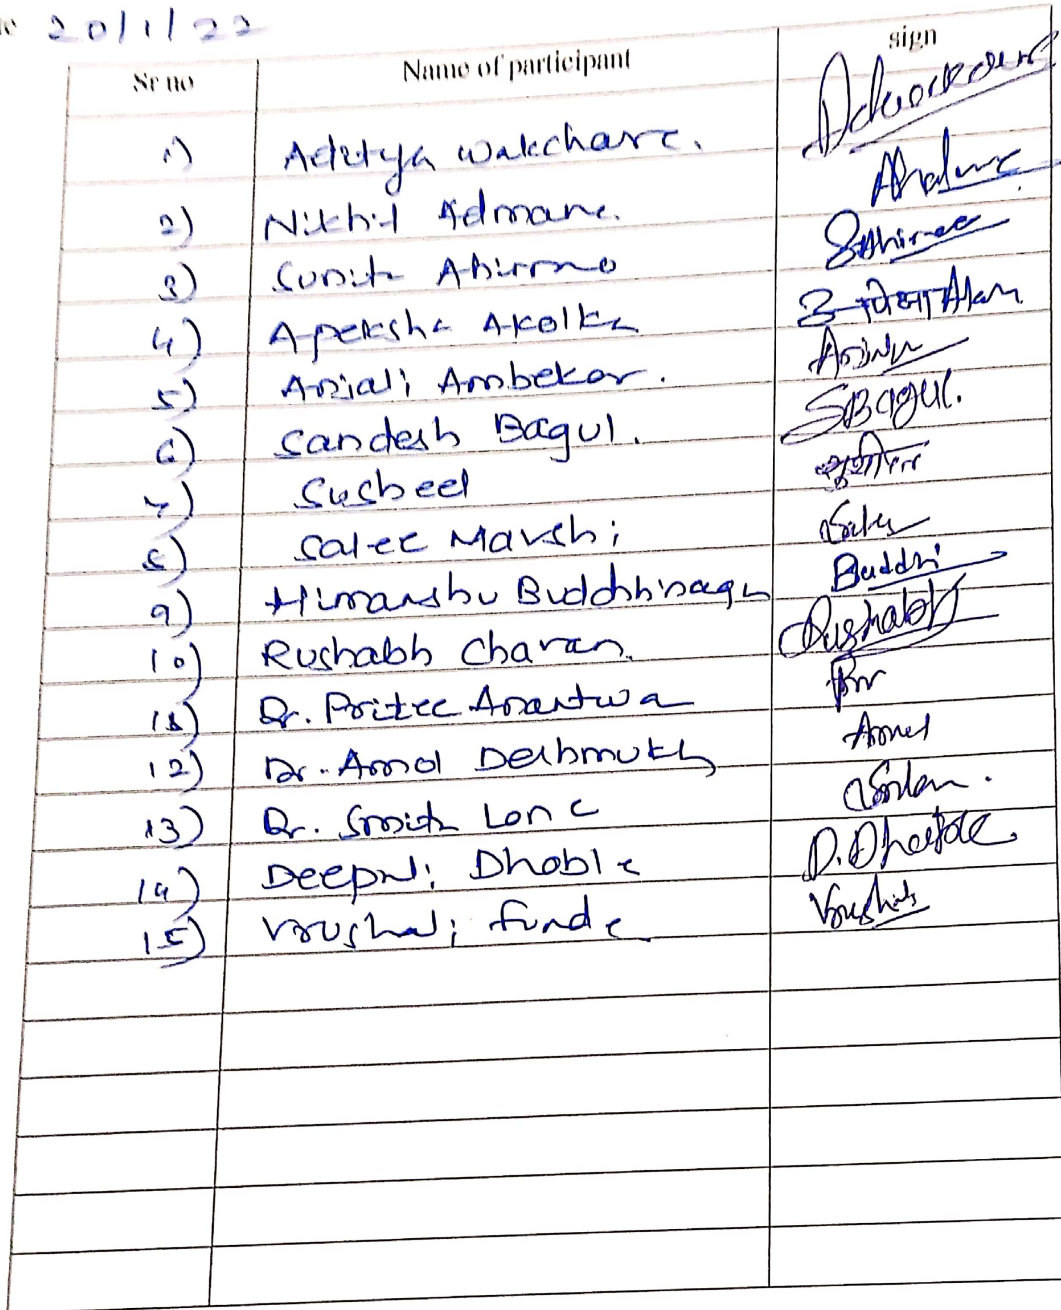 20/1/22
Sr no Name of participant sign
1) Aditya Wakchare.
2) Nikhil Admane.
3) Sunita Ahirrao
4) Apeksha Akolka
5) Anjali Ambekar.
6) Sandesh Bagul. SBagul.
7) Susheel सुशील
8) Salee Marshi
9) Himanshu Buddhinagu Buddhi
10) Rushabh Charan. Rushabh
11) Dr. Pritee Anantwa
12) Dr. Amol Deshmukh Amol
13) Dr. Smita Lone
14) Deepali Dhoble
15) Vrushali funde Vrushali